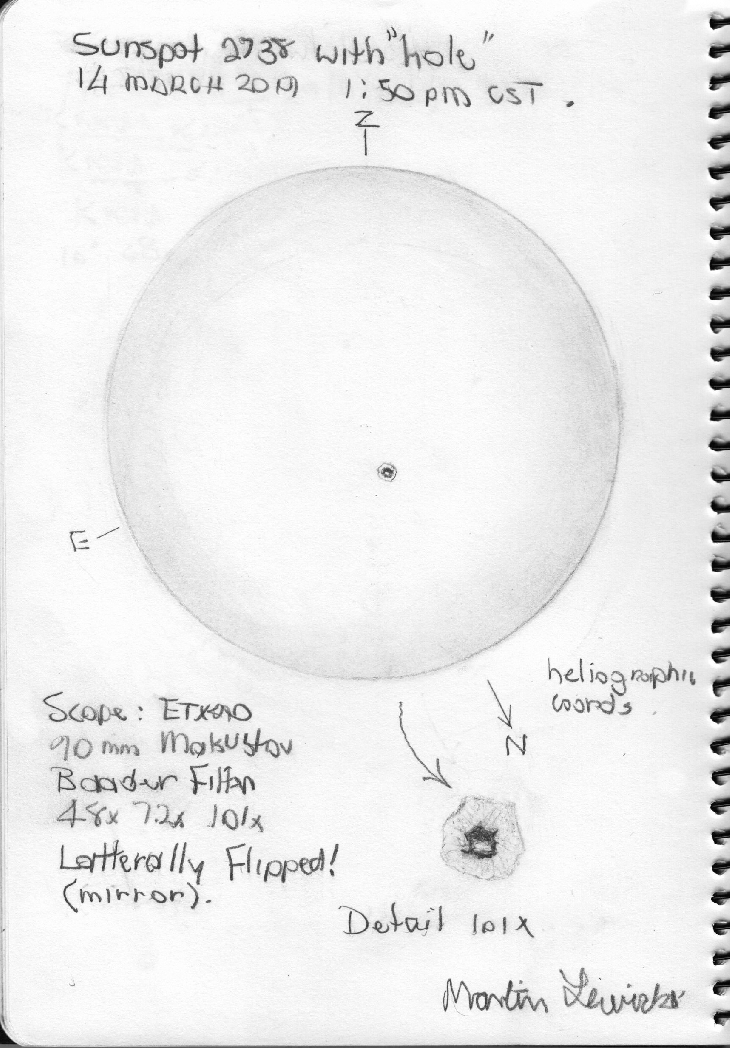 Sunspot 2738 with "hole"
14 MARCH 2019 1:50 pm CST.
Z
E
heliographic
coords.
N
Scope: ETX90
90 mm Makustov
Baader Filter
48x 72x 101x
Latterally Flipped!
(mirror).
Detail 101x
Martin Lewicki